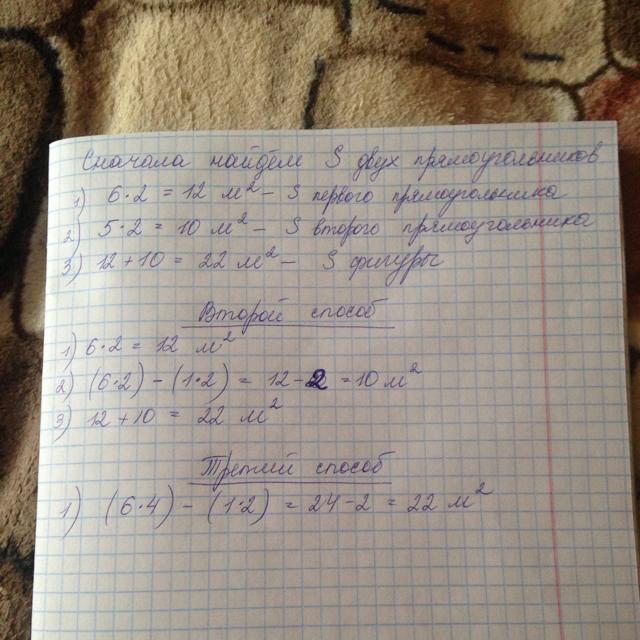 Сначала найдём S двух прямоугольников
1) 6·2 = 12 м² - S первого прямоугольника
2) 5·2 = 10 м² - S второго прямоугольника
3) 12+10 = 22 м² - S фигуры
Второй способ
1) 6·2 = 12 м²
2) (6·2) - (1·2) = 12-2 = 10 м²
3) 12+10 = 22 м²
Третий способ
1) (6·4) - (1·2) = 24-2 = 22 м²